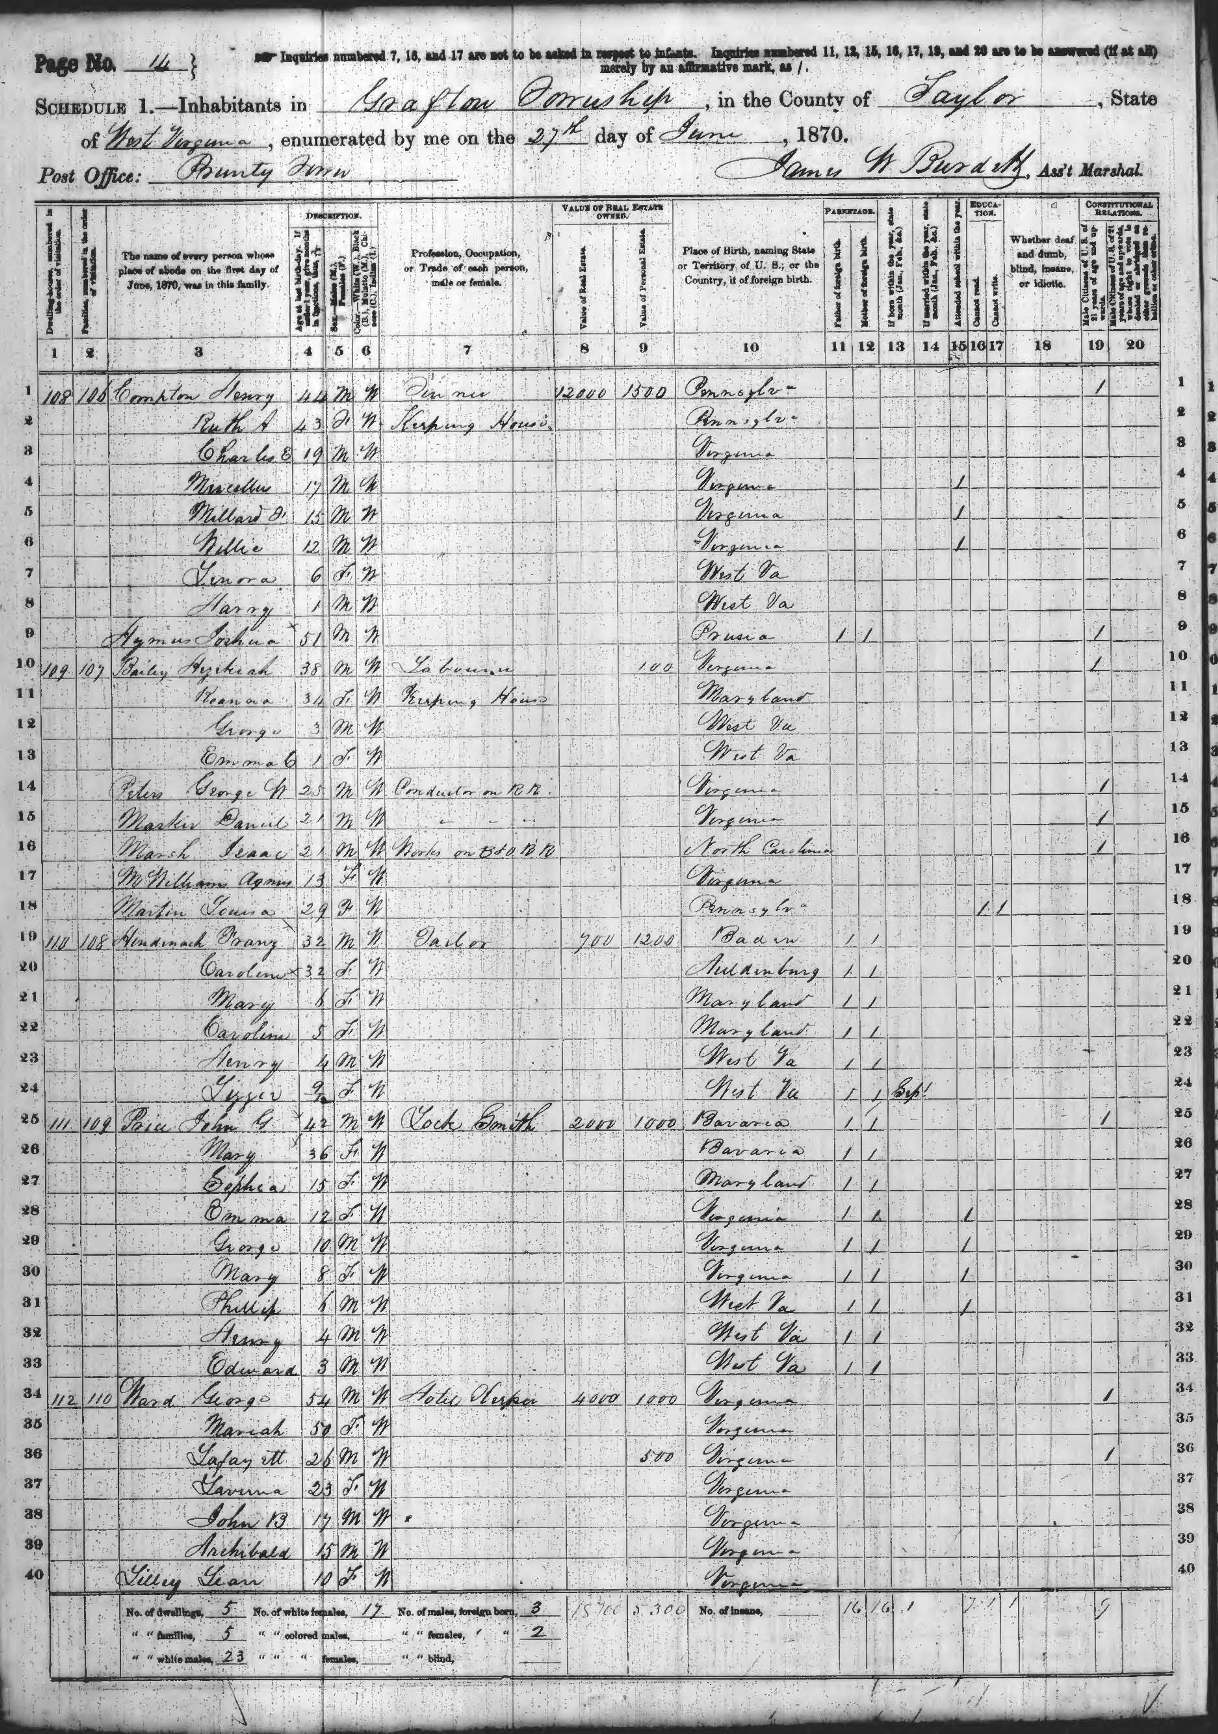 Page No. 14 } Inquiries numbered 7, 16, and 17 are not to be asked in respect to infants. Inquiries numbered 11, 12, 15, 16, 17, 19, and 20 are to be answered (if at all)
merely by an affirmative mark, as /.
SCHEDULE 1.—Inhabitants in Grafton Township, in the County of Taylor, State
of West Virginia, enumerated by me on the 27th day of June, 1870.
Post Office: James W Burdett, Ass't Marshal.
DESCRIPTION. VALUE OF REAL ESTATE OWNED. PARENTAGE. EDUCATION. CONSTITUTIONAL RELATIONS.
Dwelling-houses, numbered in the order of visitation.
Families, numbered in the order of visitation.
The name of every person whose place of abode on the first day of June, 1870, was in this family.
Profession, Occupation, or Trade of each person, male or female.
Value of Real Estate.
Value of Personal Estate.
Place of Birth, naming State or Territory of U. S.; or the Country, if of foreign birth.
Father of foreign birth.
Mother of foreign birth.
If born within the year, state month (Jan., Feb., &c.)
If married within the year, state month (Jan., Feb., &c.)
Attended school within the year.
Cannot read.
Cannot write.
Whether deaf and dumb, blind, insane, or idiotic.
1 2 3 4 5 6 7 8 9 10 11 12 13 14 15 16 17 18 19 20
1 108 106 Compton Henry 44 M W 12000 1500 Pennsylva 1 1
2 Ruth A 43 F W Keeping House Pennsylva 2
3 Charles E 19 M W Virginia 3
4 Marcellus 17 M W Virginia 1 4
5 Millard F 15 M W Virginia 1 5
6 Willie 12 M W Virginia 1 6
7 Lenora 6 F W West Va 7
8 Harry 1 M W West Va 8
9 Hymus Joshua 51 M W Prusia 1 1 1 9
10 109 107 Bailey Hezkiah 38 M W Labourer 100 Virginia 1 10
11 Roanna 34 F W Keeping House Maryland 11
12 George 3 M W West Va 12
13 Emma C 1 F W West Va 13
14 Peters George W 25 M W Conductor on R R. Virginia 1 14
15 Daniel 21 M W " " " Virginia 1 15
16 Marsh Isaac 21 M W Works on B & O R R North Carolina 1 16
17 McWilliams Agnus 13 F W Virginia 17
18 Martin Louisa 29 F W Pennsylva 1 1 18
19 110 108 Franz 32 M W Tailor 700 1200 Baden 1 1 19
20 Caroline 32 F W Auldenburg 1 1 20
21 Mary 6 F W Maryland 1 1 21
22 Caroline 5 F W Maryland 1 1 22
23 Henry 4 M W West Va 1 1 23
24 Lizzer 9/12 F W West Va 1 1 Sept 24
25 111 109 Price John G 42 M W Lock Smith 2000 1000 Bavaria 1 1 1 25
26 Mary 36 F W Bavaria 1 1 26
27 Sophia 15 F W Maryland 1 1 27
28 Emma 12 F W Virginia 1 1 1 28
29 George 10 M W Virginia 1 1 1 29
30 Mary 8 F W Virginia 1 1 1 30
31 Phillip 6 M W West Va 1 1 1 31
32 Henry 4 M W West Va 1 1 32
33 Edward 3 M W West Va 1 1 33
34 112 110 Ward George 54 M W Hotel Keeper 4000 1000 Virginia 1 34
35 Mariah 50 F W Virginia 35
36 Lafayett 26 M W 500 Virginia 1 36
37 Laverna 23 F W Virginia 37
38 John B 17 M W Virginia 38
39 Archibald 15 M W Virginia 39
40 Lilley Lean 10 F W Virginia 40
No. of dwellings, 5 No. of white females, 17 No. of males, foreign born, 3 18700 5300 No. of insane, 16 16 1 7 1 1 9
" " families, 5 " " colored males, " " females, " " 2
" " white males, 23 " " " females, " " blind,